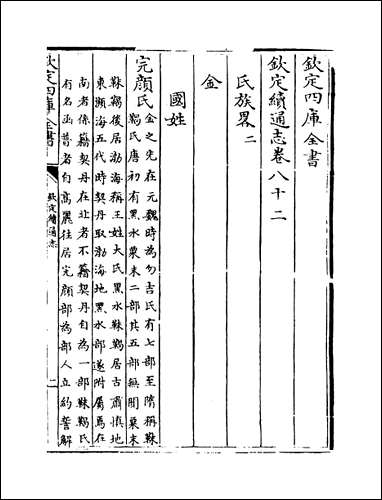 欽定四庫全書
欽定續通志卷八十二
氏族畧二
金
國姓
完顔氏
金之先在元魏時為勿吉氏有七部至隋稱靺
鞨氏唐初有黑水粟末二部其五部無聞粟末
靺鞨後居渤海稱王姓大氏黑水靺鞨居古肅慎地
東瀕海五代時契丹取渤海地黑水部遂附屬焉在
南者係籍契丹在北者不籍契丹自為一部靺鞨氏
有名函普者自高麗往居完顔部為部人立約誓解
欽定四庫全書
欽定續通志